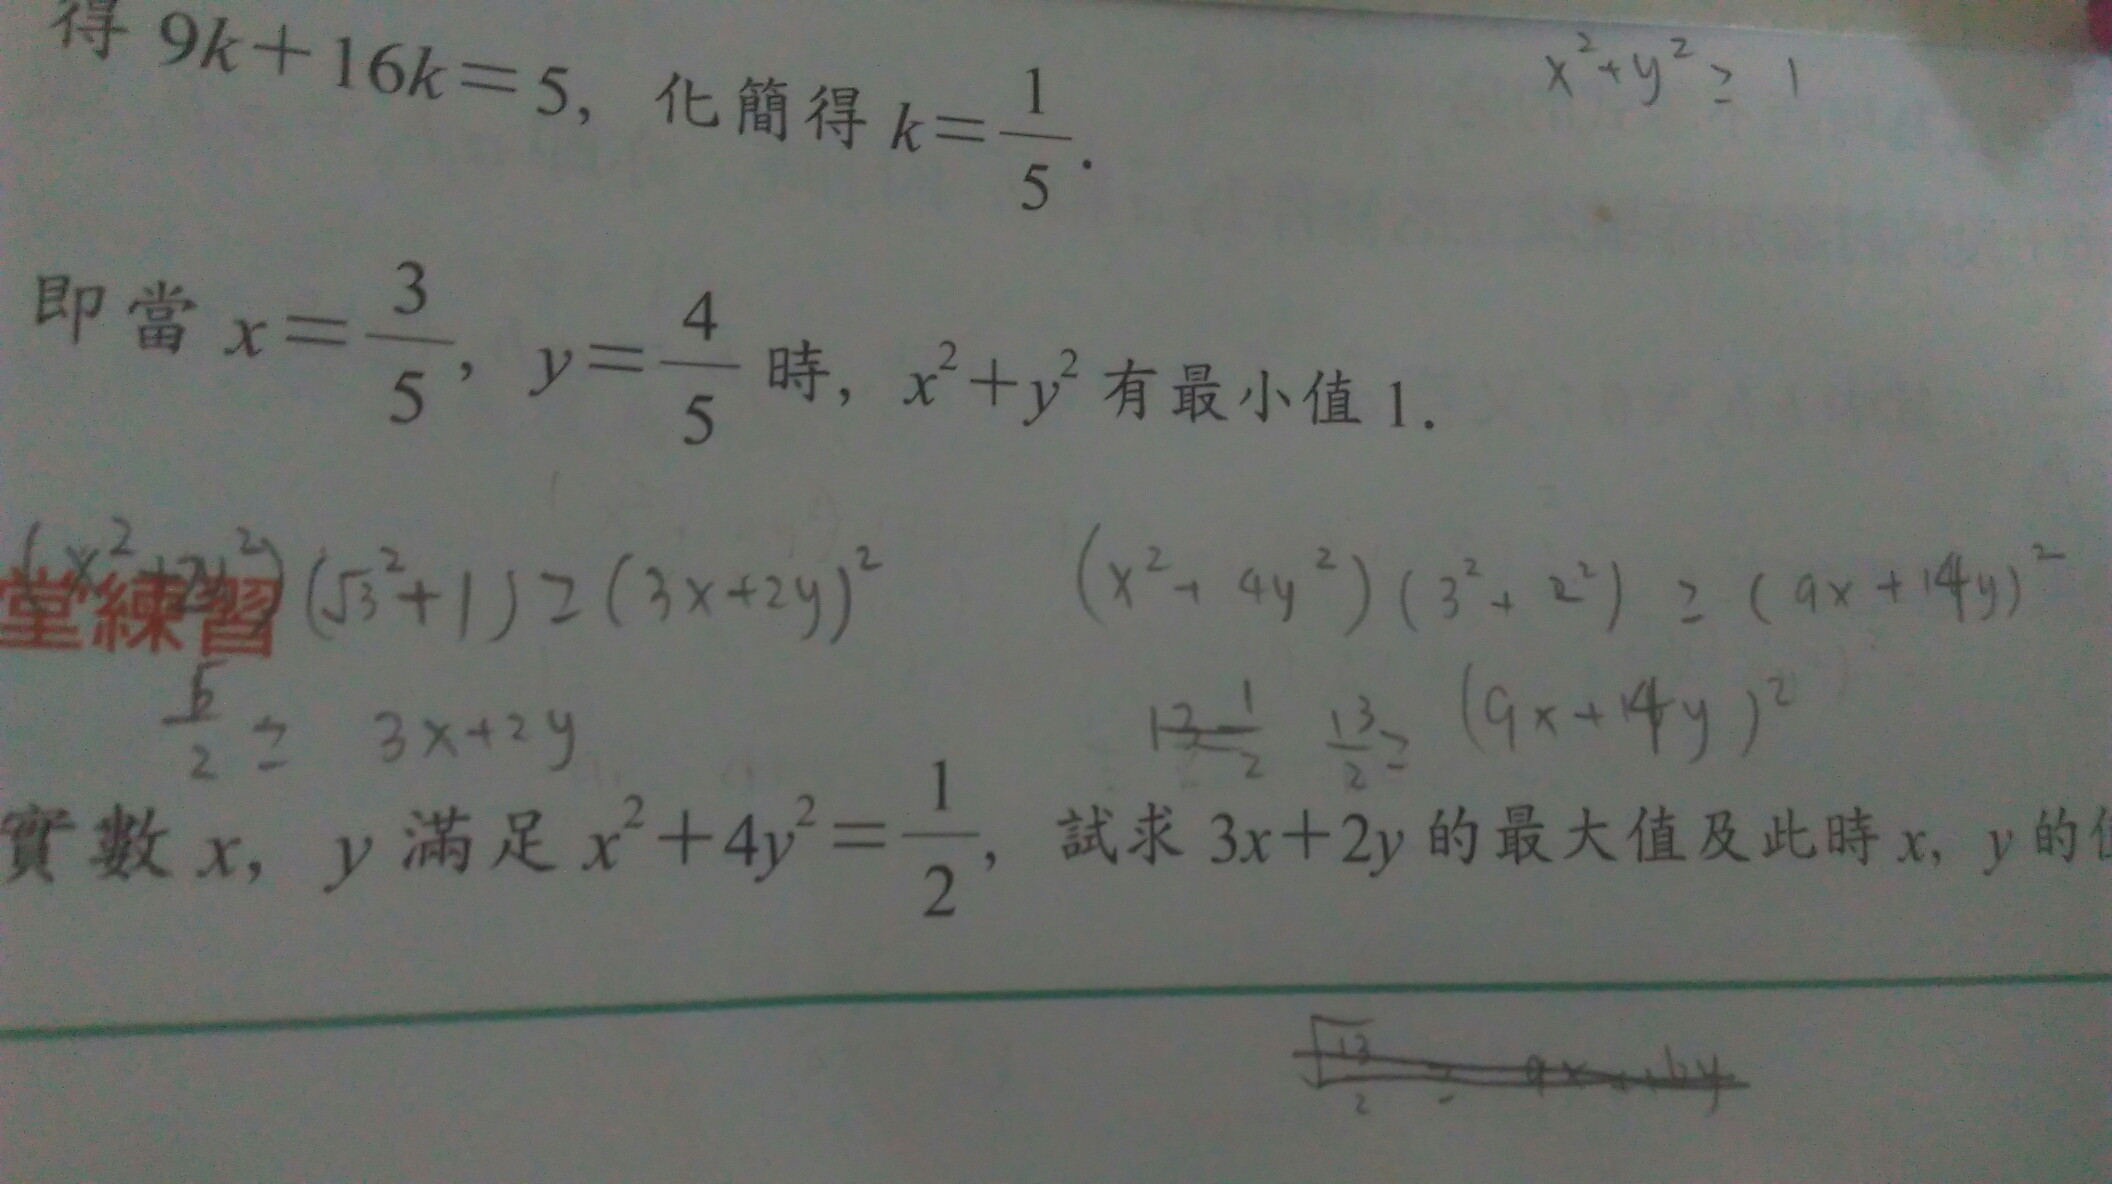 得 9k+16k=5, 化簡得 k=1/5.
x²+y² ≥ 1
即當 x=3/5, y=4/5 時, x²+y² 有最小值 1.
(x²+2y²)(√3²+1) ≥ (3x+2y)²
(x²+4y²)(3²+2²) ≥ (9x+14y)²
堂練習
≥ 3x+2y
13/2 ≥ (9x+14y)²
實數 x, y 滿足 x²+4y²=1/2, 試求 3x+2y 的最大值及此時 x, y 的